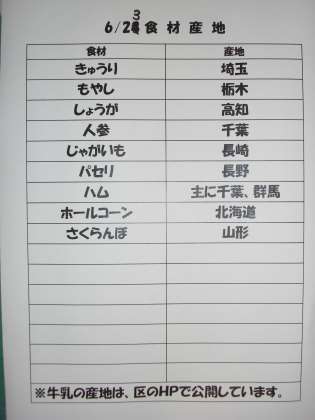 6/23食材産地
食材 産地
きゅうり 埼玉
もやし 栃木
しょうが 高知
人参 千葉
じゃがいも 長崎
パセリ 長野
ハム 主に千葉、群馬
ホールコーン 北海道
さくらんぼ 山形
※牛乳の産地は、区のHPで公開しています。